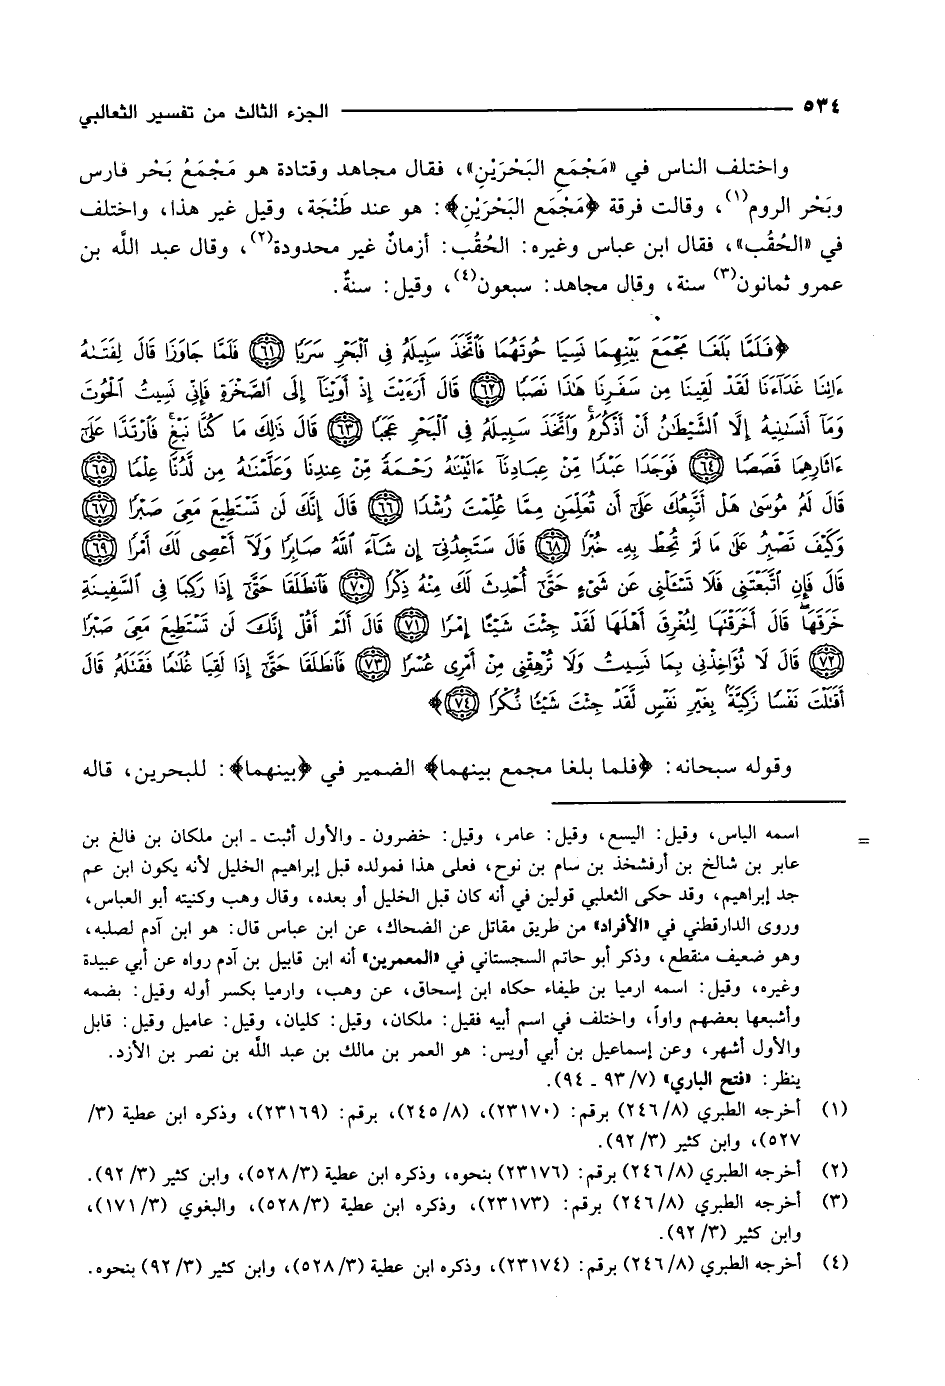 ٥٣٤ الجزء الثالث من تفسير الثعالبي
واختلف الناس في «مَجْمَع البَحْرَيْنِ»، فقال مجاهد وقتادة هو مَجْمَعُ بَحْر فارس
وبَحْر الروم(١)، وقالت فرقة ﴿مَجْمَع البَحْرَيْنِ﴾: هو عند طَنْجَة، وقيل غير هذا، واختلف
في «الحُقُب»، فقال ابن عباس وغيره: الحُقُب: أزمانٌ غير محدودة(٢)، وقال عبد اللَّه بن
عمرو ثمانون(٣) سنة، وقال مجاهد: سبعون(٤)، وقيل: سنةٌ.
﴿فَلَمَّا بَلَغَا مَجْمَعَ بَيْنِهِمَا نَسِيَا حُوتَهُمَا فَٱتَّخَذَ سَبِيلَهُۥ فِى ٱلْبَحْرِ سَرَبًا ﴿٦١﴾ فَلَمَّا جَاوَزَا قَالَ لِفَتَىٰهُ
ءَاتِنَا غَدَآءَنَا لَقَدْ لَقِينَا مِن سَفَرِنَا هَٰذَا نَصَبًا ﴿٦٢﴾ قَالَ أَرَءَيْتَ إِذْ أَوَيْنَآ إِلَى ٱلصَّخْرَةِ فَإِنِّى نَسِيتُ ٱلْحُوتَ
وَمَآ أَنسَىٰنِيهُ إِلَّا ٱلشَّيْطَٰنُ أَنْ أَذْكُرَهُۥ وَٱتَّخَذَ سَبِيلَهُۥ فِى ٱلْبَحْرِ عَجَبًا ﴿٦٣﴾ قَالَ ذَٰلِكَ مَا كُنَّا نَبْغِ فَٱرْتَدَّا عَلَىٰٓ
ءَاثَارِهِمَا قَصَصًا ﴿٦٤﴾ فَوَجَدَا عَبْدًا مِّنْ عِبَادِنَآ ءَاتَيْنَٰهُ رَحْمَةً مِّنْ عِندِنَا وَعَلَّمْنَٰهُ مِن لَّدُنَّا عِلْمًا ﴿٦٥﴾
قَالَ لَهُۥ مُوسَىٰ هَلْ أَتَّبِعُكَ عَلَىٰٓ أَن تُعَلِّمَنِ مِمَّا عُلِّمْتَ رُشْدًا ﴿٦٦﴾ قَالَ إِنَّكَ لَن تَسْتَطِيعَ مَعِىَ صَبْرًا ﴿٦٧﴾
وَكَيْفَ تَصْبِرُ عَلَىٰ مَا لَمْ تُحِطْ بِهِۦ خُبْرًا ﴿٦٨﴾ قَالَ سَتَجِدُنِىٓ إِن شَآءَ ٱللَّهُ صَابِرًا وَلَآ أَعْصِى لَكَ أَمْرًا ﴿٦٩﴾
قَالَ فَإِنِ ٱتَّبَعْتَنِى فَلَا تَسْـَٔلْنِى عَن شَىْءٍ حَتَّىٰٓ أُحْدِثَ لَكَ مِنْهُ ذِكْرًا ﴿٧٠﴾ فَٱنطَلَقَا حَتَّىٰٓ إِذَا رَكِبَا فِى ٱلسَّفِينَةِ
خَرَقَهَا قَالَ أَخَرَقْتَهَا لِتُغْرِقَ أَهْلَهَا لَقَدْ جِئْتَ شَيْـًٔا إِمْرًا ﴿٧١﴾ قَالَ أَلَمْ أَقُلْ إِنَّكَ لَن تَسْتَطِيعَ مَعِىَ صَبْرًا
﴿٧٢﴾ قَالَ لَا تُؤَاخِذْنِى بِمَا نَسِيتُ وَلَا تُرْهِقْنِى مِنْ أَمْرِى عُسْرًا ﴿٧٣﴾ فَٱنطَلَقَا حَتَّىٰٓ إِذَا لَقِيَا غُلَٰمًا فَقَتَلَهُۥ قَالَ
أَقَتَلْتَ نَفْسًا زَكِيَّةًۢ بِغَيْرِ نَفْسٍ لَّقَدْ جِئْتَ شَيْـًٔا نُّكْرًا ﴿٧٤﴾﴾
وقوله سبحانه: ﴿فلما بلغا مجمع بينهما﴾ الضمير في ﴿بينهما﴾: للبحرين، قاله
= اسمه الياس، وقيل: اليسع، وقيل: عامر، وقيل: خضرون ـ والأول أثبت ـ ابن ملكان بن فالغ بن
عابر بن شالخ بن أرفشخذ بن سام بن نوح، فعلى هذا فمولده قبل إبراهيم الخليل لأنه يكون ابن عم
جد إبراهيم، وقد حكى الثعلبي قولين في أنه كان قبل الخليل أو بعده، وقال وهب وكنيته أبو العباس،
وروى الدارقطني في «الأفراد» من طريق مقاتل عن الضحاك، عن ابن عباس قال: هو ابن آدم لصلبه،
وهو ضعيف منقطع، وذكر أبو حاتم السجستاني في «المعمرين» أنه ابن قابيل بن آدم رواه عن أبي عبيدة
وغيره، وقيل: اسمه ارميا بن طيفاء حكاه ابن إسحاق، عن وهب، وارميا بكسر أوله وقيل: بضمه
وأشبعها بعضهم واواً، واختلف في اسم أبيه فقيل: ملكان، وقيل: كليان، وقيل: عاميل وقيل: قابل
والأول أشهر، وعن إسماعيل بن أبي أويس: هو العمر بن مالك بن عبد اللَّه بن نصر بن الأزد.
ينظر: «فتح الباري» (٧/ ٩٣ ـ ٩٤).
(١) أخرجه الطبري (٨/ ٢٤٦) برقم: (٢٣١٧٠)، (٨/ ٢٤٥)، برقم: (٢٣١٦٩)، وذكره ابن عطية (٣/
٥٢٧)، وابن كثير (٣/ ٩٢).
(٢) أخرجه الطبري (٨/ ٢٤٦) برقم: (٢٣١٧٦) بنحوه، وذكره ابن عطية (٣/ ٥٢٨)، وابن كثير (٣/ ٩٢).
(٣) أخرجه الطبري (٨/ ٢٤٦) برقم: (٢٣١٧٣)، وذكره ابن عطية (٣/ ٥٢٨)، والبغوي (٣/ ١٧١)،
وابن كثير (٣/ ٩٢).
(٤) أخرجه الطبري (٨/ ٢٤٦) برقم: (٢٣١٧٤)، وذكره ابن عطية (٣/ ٥٢٨)، وابن كثير (٣/ ٩٢) بنحوه.